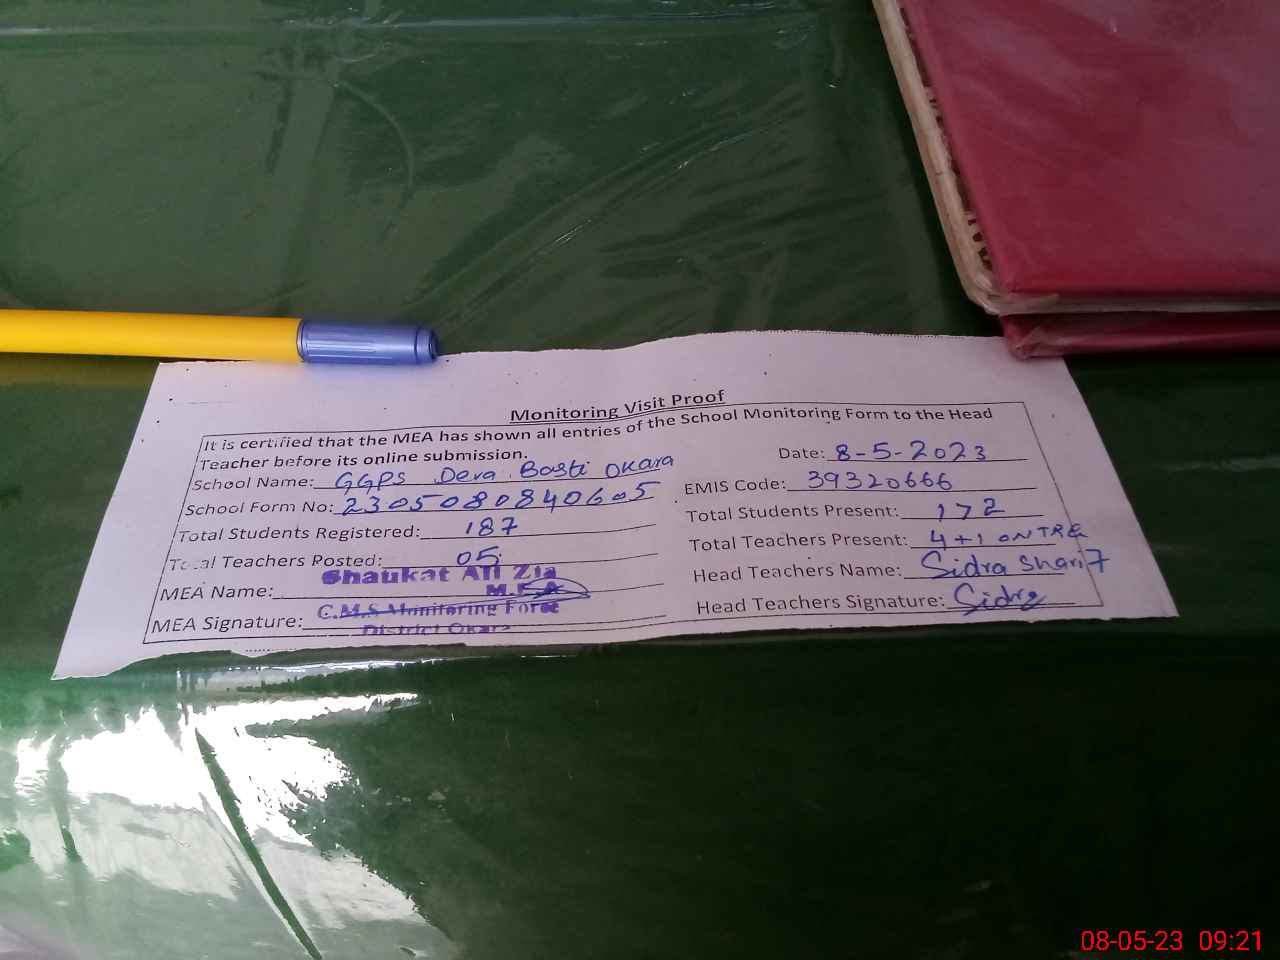 Monitoring Visit Proof
It is certified that the MEA has shown all entries of the School Monitoring Form to the Head
Teacher before its online submission.
Date: 8-5-2023
School Name: GGPS Dera Basti Okara
EMIS Code: 39320666
School Form No: 2305080840605
Total Students Present: 172
Total Students Registered: 187
Total Teachers Present: 4+1 ON TRG
Total Teachers Posted: 05
Head Teachers Name: Sidra Sharif
MEA Name: Shaukat Ali Zia
M.E.A
Head Teachers Signature: Sidra
MEA Signature: C.M.S Monitoring Force
District Okara
08-05-23 09:21